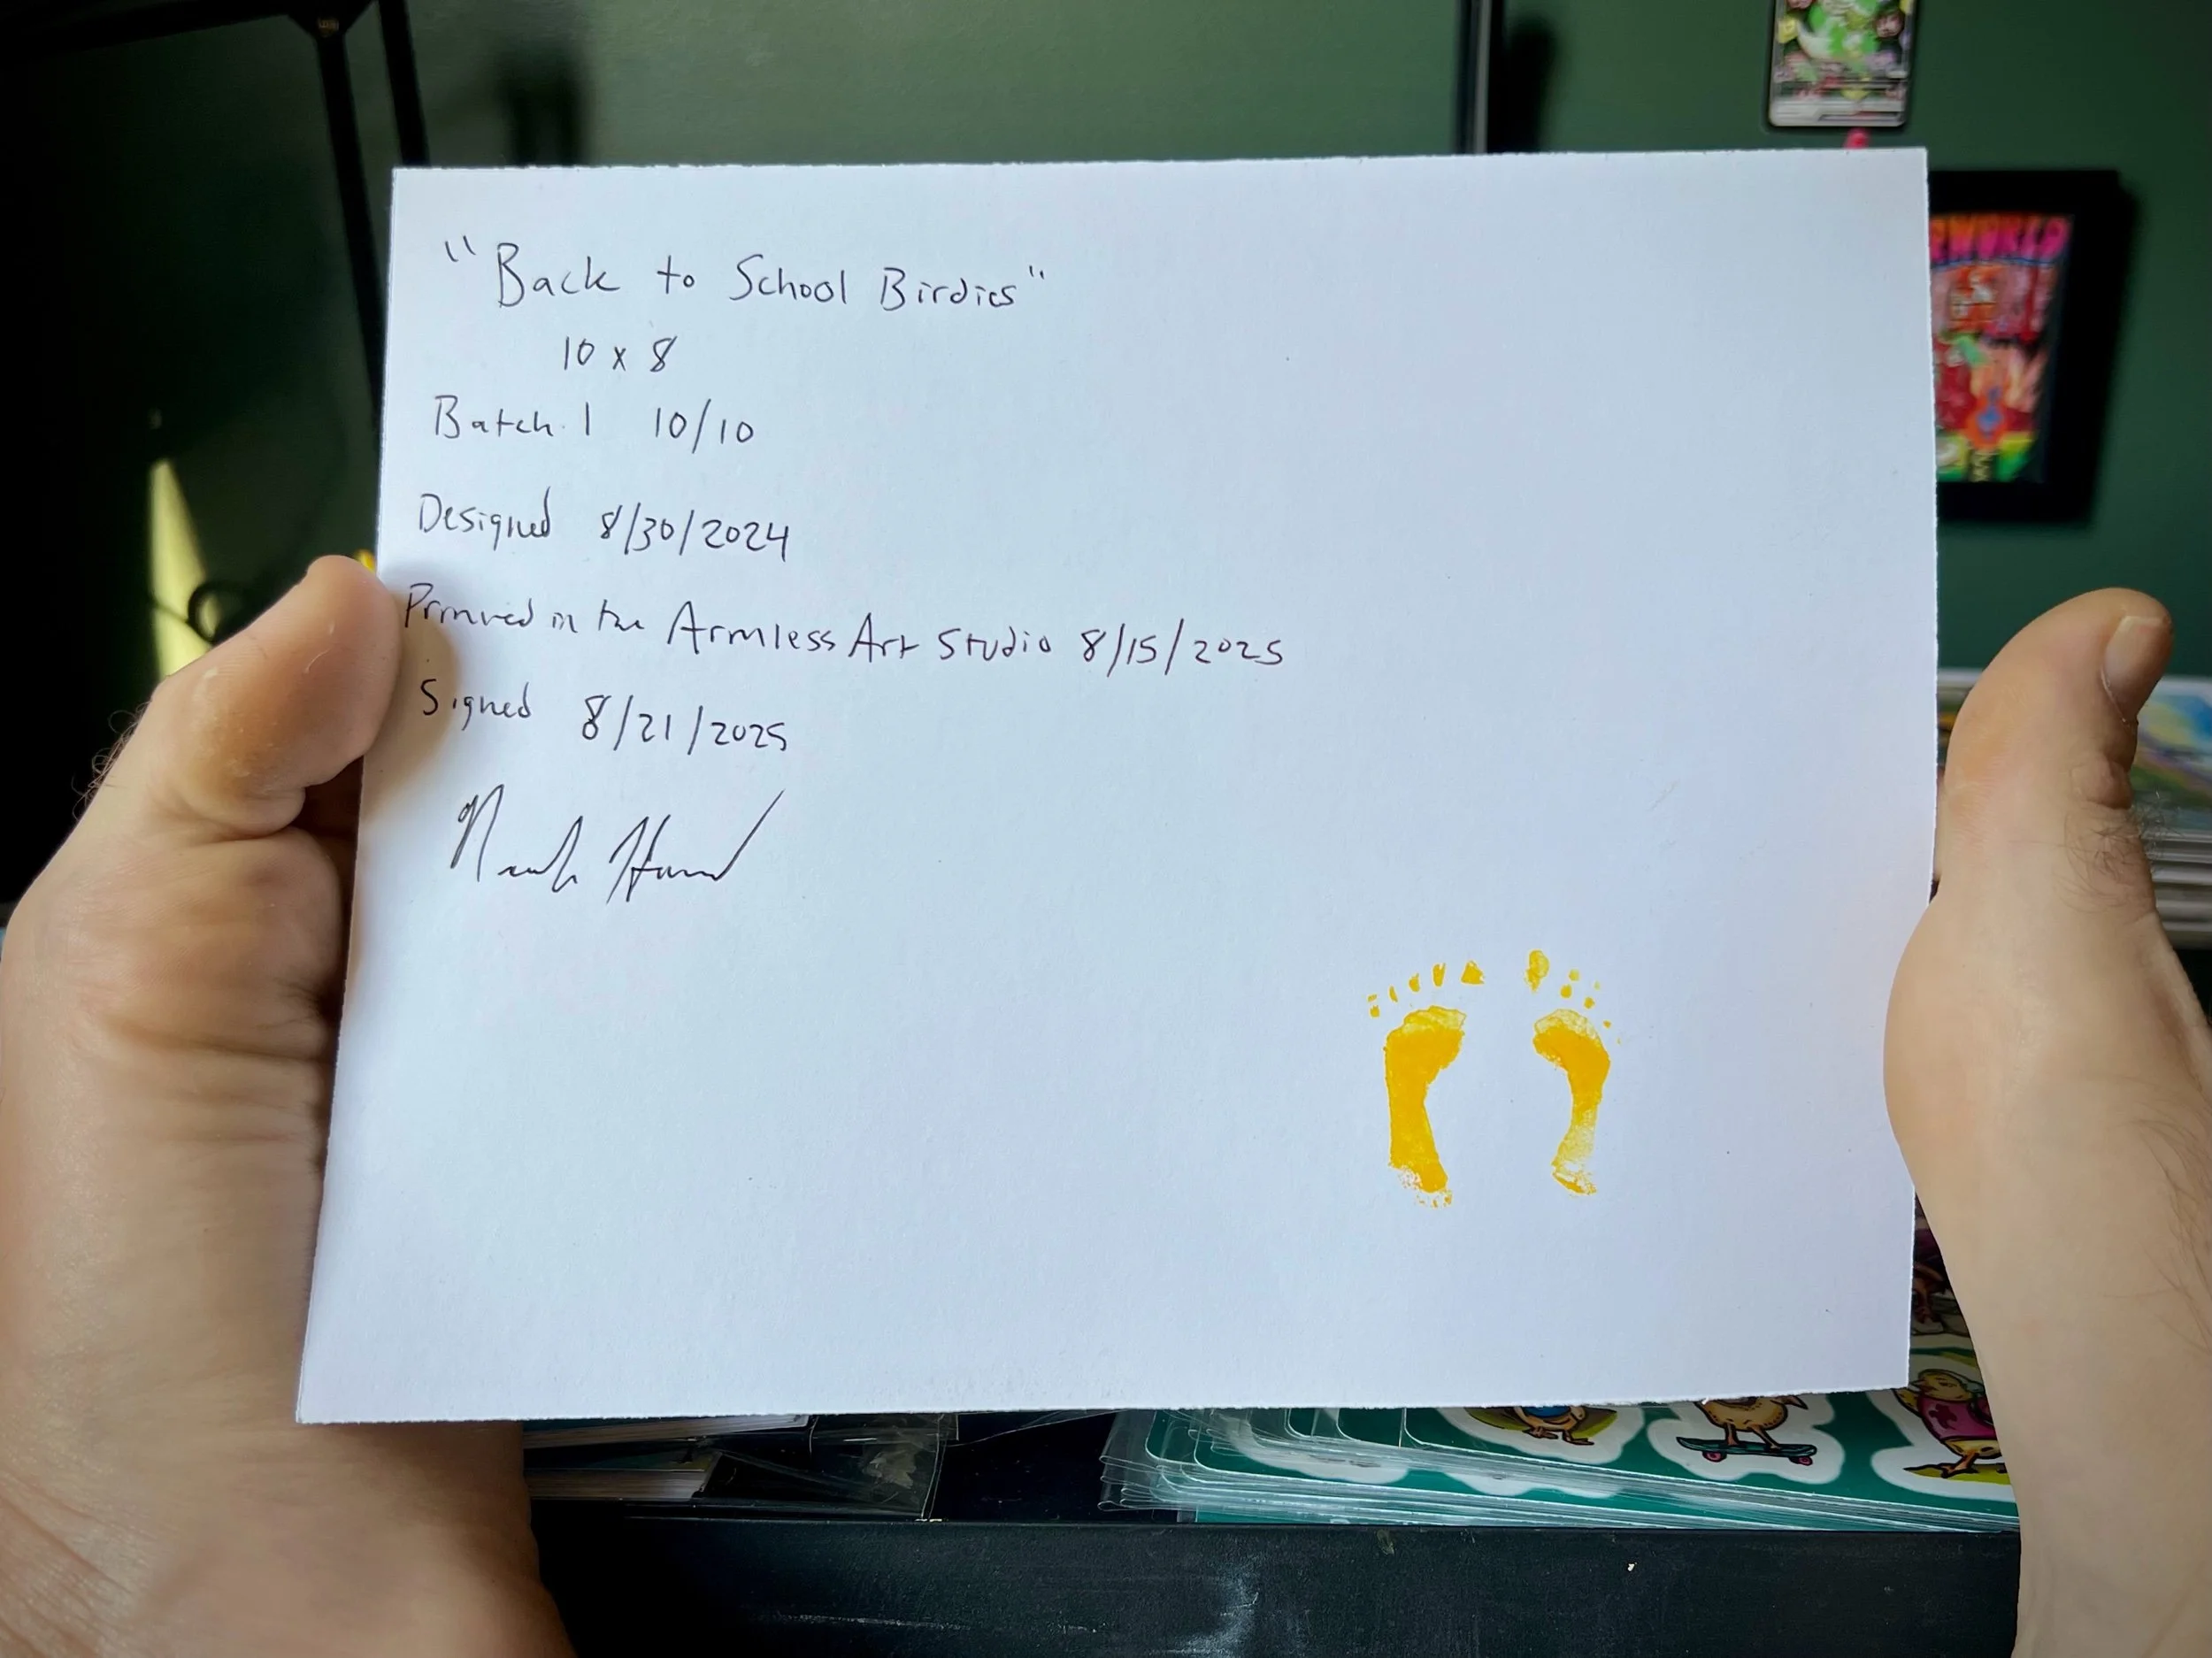 "Back to School Birdies"
10 x 8
Batch 1 10/10
Designed 8/30/2024
Printed in the Armless Art Studio 8/15/2025
Signed 8/21/2025